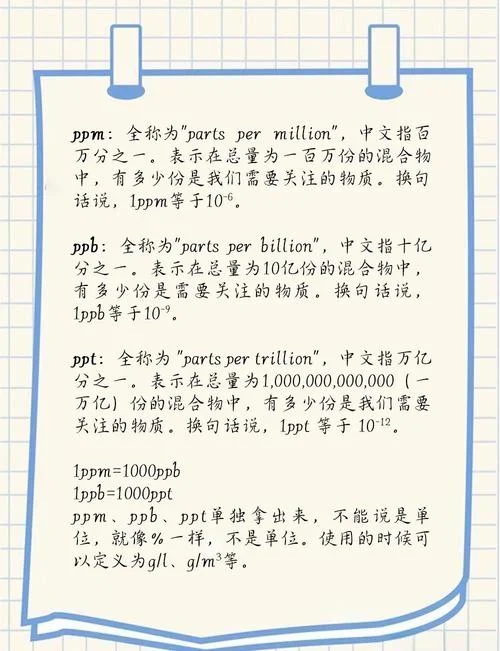 ppm：全称为"parts per million"，中文指百
万分之一。表示在总量为一百万份的混合物
中，有多少份是我们需要关注的物质。换句
话说，1ppm等于10⁻⁶。
ppb：全称为"parts per billion"，中文指十亿
分之一。表示在总量为10亿份的混合物中，
有多少份是需要关注的物质。换句话说，
1ppb等于10⁻⁹。
ppt：全称为 "parts per trillion"，中文指万亿
分之一。表示在总量为1,000,000,000,000（一
万亿）份的混合物中，有多少份是我们需要
关注的物质。换句话说，1ppt 等于 10⁻¹²。
1ppm=1000ppb
1ppb=1000ppt
ppm、ppb、ppt单独拿出来，不能说是单
位，就像%一样，不是单位。使用的时候可
以定义为g/l、g/m³等。